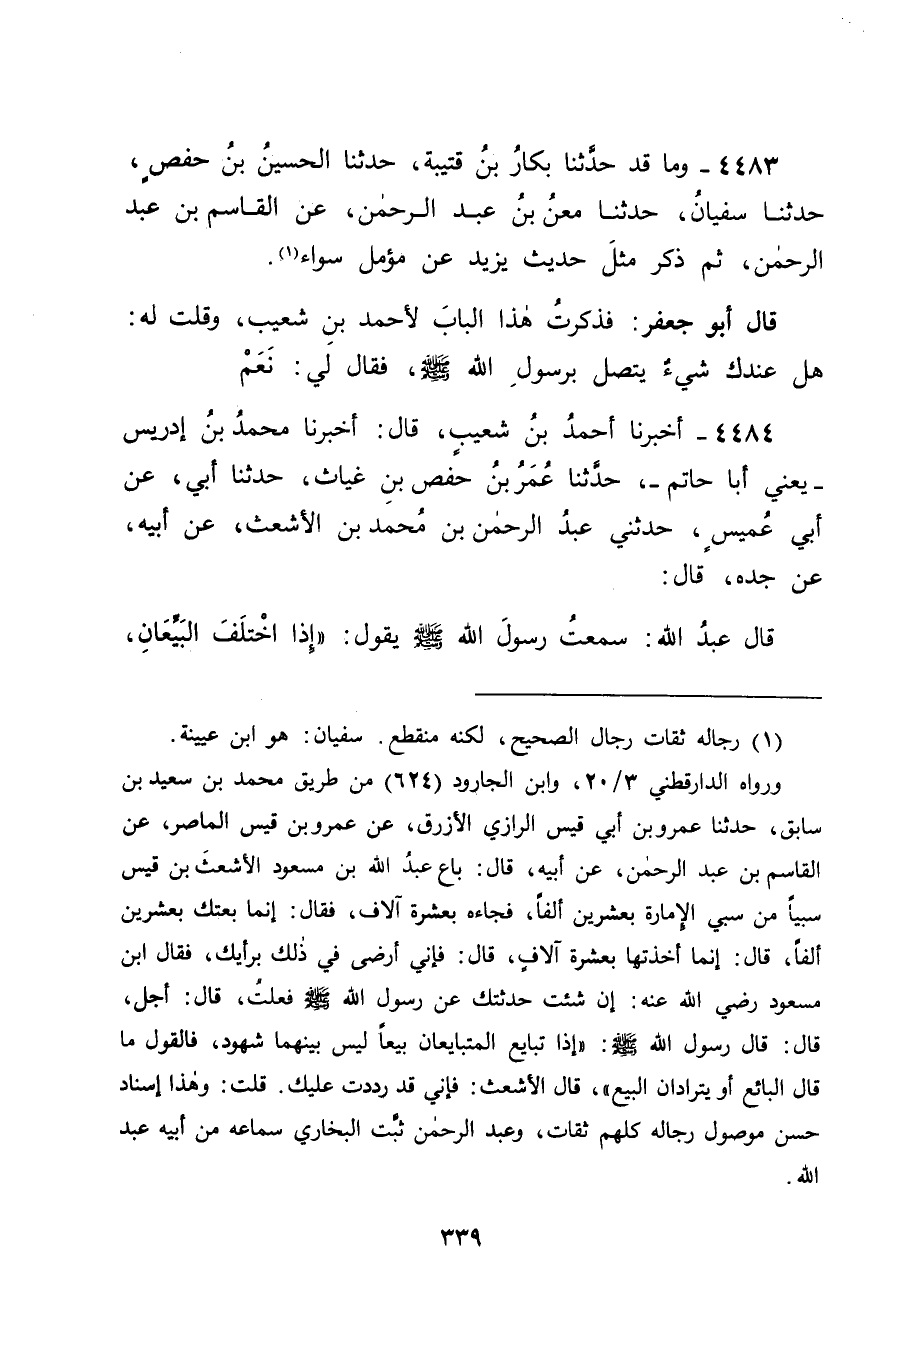 ٤٤٨٣ ـ وما قد حدَّثنا بكارُ بنُ قتيبة، حدثنا الحسينُ بنُ حفصٍ،
حدثنـا سفيانُ، حدثنـا معنُ بنُ عبـد الـرحمٰن، عن القـاسم بن عبد
الرحمٰن، ثم ذكر مثلَ حديث يزيد عن مؤمل سواء(١).
قال أبو جعفر: فذكرتُ هٰذا البابَ لأحمد بنِ شعيب، وقلت له:
هل عندك شيءٌ يتصل برسولِ الله ﷺ، فقال لي: نَعَمْ
٤٤٨٤ ـ أخبرنا أحمدُ بنُ شعيبٍ، قال: أخبرنا محمدُ بنُ إدريس
ـ يعني أبا حاتم ـ، حدَّثنا عُمَرُ بنُ حفص بنِ غياث، حدثنا أبي، عن
أبي عُميسٍ، حدثني عبدُ الرحمٰن بن مُحمد بن الأشعث، عن أبيه،
عن جده، قال:
قال عبدُ الله: سمعتُ رسولَ الله ﷺ يقول: «إِذا اخْتلَفَ البَيِّعَانِ،
(١) رجاله ثقات رجال الصحيح، لكنه منقطع. سفيان: هو ابن عيينة.
ورواه الدارقطني ٢٠/٣، وابن الجارود (٦٢٤) من طريق محمد بن سعيد بن
سابق، حدثنا عمرو بن أبي قيس الرازي الأزرق، عن عمرو بن قيس الماصر، عن
القاسم بن عبد الرحمٰن، عن أبيه، قال: باع عبدُ الله بن مسعود الأشعثَ بن قيس
سبياً من سبي الإمارة بعشرين ألفاً، فجاءه بعشرة آلاف، فقال: إنما بعتك بعشرين
ألفاً، قال: إنما أخذتها بعشرة آلافٍ، قال: فإني أرضى في ذٰلك برأيك، فقال ابن
مسعود رضي الله عنه: إن شئت حدثتك عن رسول الله ﷺ فعلتُ، قال: أجل،
قال: قال رسول الله ﷺ: «إذا تبايع المتبايعان بيعاً ليس بينهما شهود، فالقول ما
قال البائع أو يترادان البيع»، قال الأشعث: فإني قد رددت عليك. قلت: وهٰذا إسناد
حسن موصول رجاله كلهم ثقات، وعبد الرحمٰن ثبَّت البخاري سماعه من أبيه عبد
الله.
٣٣٩